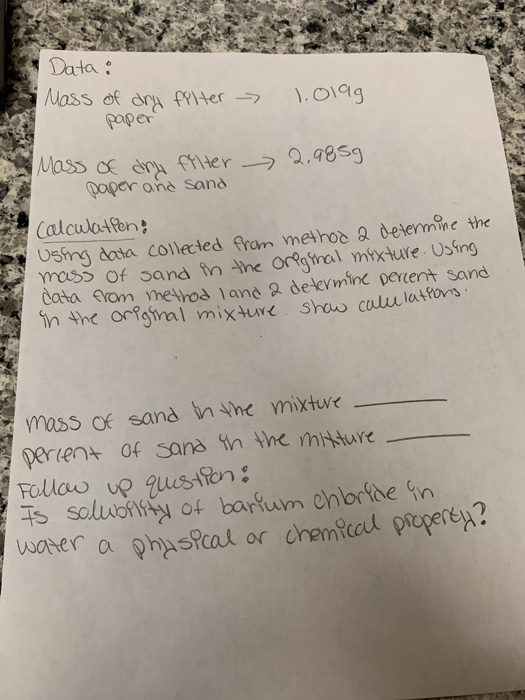 Data:
Mass of dry filter → 1.019g
paper
Mass of dry filter → 2.985g
paper and sand
Calculation:
Using data collected from method 2 determine the
mass of sand in the original mixture. Using
data from method 1 and 2 determine percent sand
in the original mixture. show calulations.
mass of sand in the mixture ______
percent of sand in the mixture ______
Follow up question:
Is solubility of barium chloride in
water a physical or chemical property?